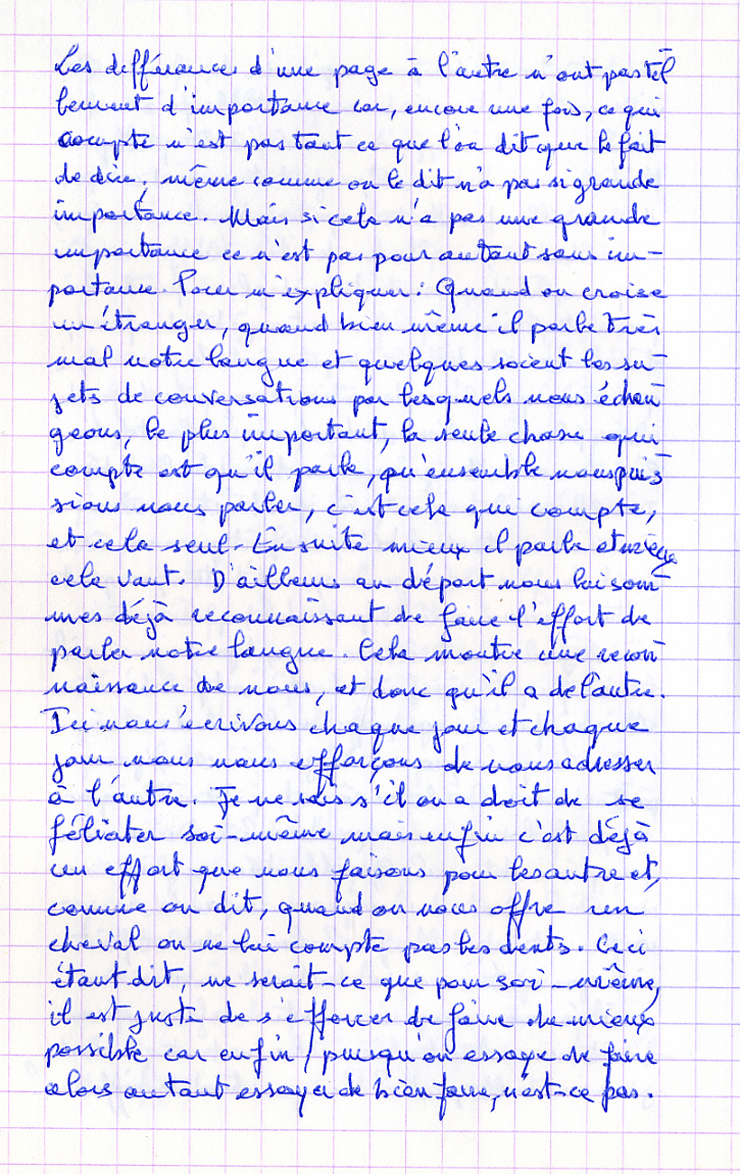 Les différences d'une page à l'autre n'ont pas tel
lement d'importance car, encore une fois, ce qui
compte n'est pas tant ce que l'on dit que le fait
de dire, même comme on le dit n'a pas si grande
importance. Mais si cela n'a pas une grande
importance ce n'est pas pour autant sans im-
portance. Pour m'expliquer : Quand on croise
un étranger, quand bien même il parle très
mal notre langue et quelques soient les su-
jets de conversations par lesquels nous échan
geons, le plus important, la seule chose qui
compte est qu'il parle, qu'ensemble nous puis
sions nous parler, c'est cela qui compte,
et cela seul. Ensuite mieux il parle et mieux
cela vaut. D'ailleurs au départ nous lui som
mes déjà reconnaissant de faire l'effort de
parler notre langue. Cela montre une recon
naissance de nous, et donc qu'il a de l'autre.
Ici nous écrivons chaque jour et chaque
jour nous nous efforçons de nous adresser
à l'autre. Je ne sais s'il on a droit de se
féliciter soi-même mais enfin c'est déjà
un effort que nous faisons pour les autre et,
comme on dit, quand on nous offre un
cheval on ne lui compte pas les dents. Ceci
étant dit, ne serait-ce que pour soi-même,
il est juste de s'efforcer de faire du mieux
possible car enfin, puisqu'on essaye de faire
alors autant essayer de bien faire, n'est-ce pas.